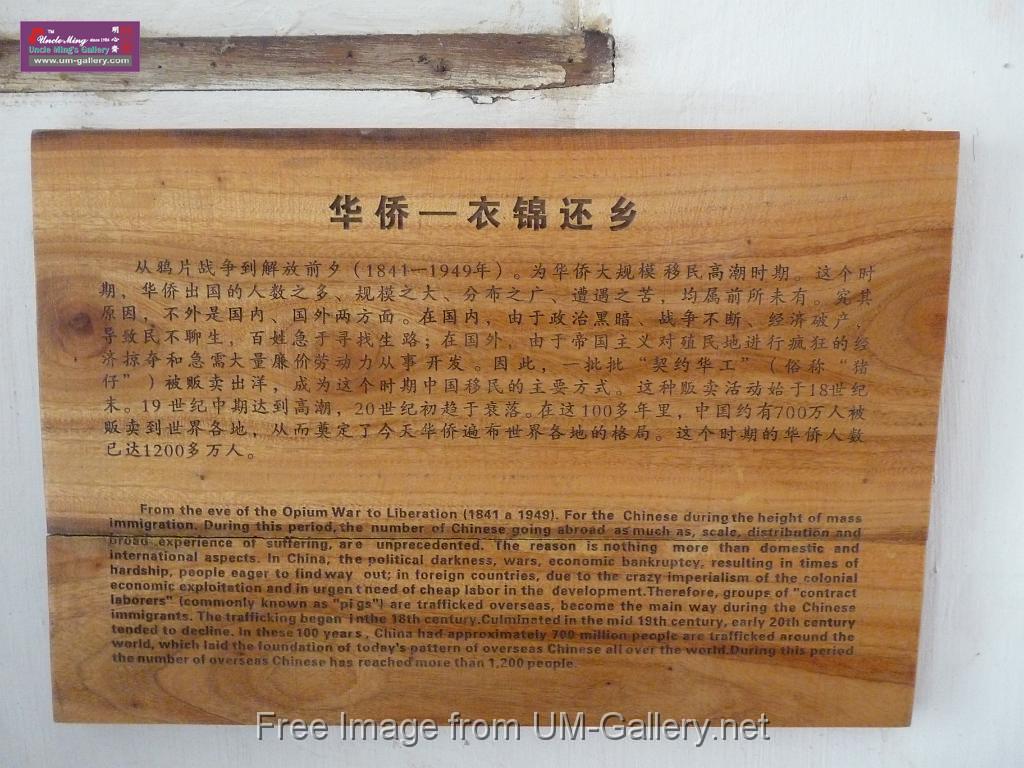 TM
Uncle Ming since 1986
Uncle Ming's Gallery
明心齋
www.um-gallery.com
华侨—衣锦还乡
从鸦片战争到解放前夕（1841—1949年）。为华侨大规模移民高潮时期。这个时
期，华侨出国的人数之多、规模之大、分布之广、遭遇之苦，均属前所未有。究其
原因，不外是国内、国外两方面。在国内，由于政治黑暗、战争不断、经济破产，
导致民不聊生，百姓急于寻找生路；在国外，由于帝国主义对殖民地进行疯狂的经
济掠夺和急需大量廉价劳动力从事开发。因此，一批批“契约华工”（俗称“猪
仔”）被贩卖出洋，成为这个时期中国移民的主要方式。这种贩卖活动始于18世纪
末。19世纪中期达到高潮，20世纪初趋于衰落。在这100多年里，中国约有700万人被
贩卖到世界各地，从而奠定了今天华侨遍布世界各地的格局。这个时期的华侨人数
已达1200多万人。
From the eve of the Opium War to Liberation (1841 a 1949). For the Chinese during the height of mass
immigration. During this period, the number of Chinese going abroad as much as, scale, distribution and
broad experience of suffering, are unprecedented. The reason is nothing more than domestic and
international aspects. In China, the political darkness, wars, economic bankruptcy, resulting in times of
hardship, people eager to find way out; in foreign countries, due to the crazy imperialism of the colonial
economic exploitation and in urgent need of cheap labor in the development.Therefore, groups of "contract
laborers" (commonly known as "pigs") are trafficked overseas, become the main way during the Chinese
immigrants. The trafficking began inthe 18th century.Culminated in the mid 19th century, early 20th century
tended to decline. In these 100 years, China had approximately 700 million people are trafficked around the
world, which laid the foundation of today's pattern of overseas Chinese all over the world.During this period
the number of overseas Chinese has reached more than 1,200 people.
Free Image from UM-Gallery.net